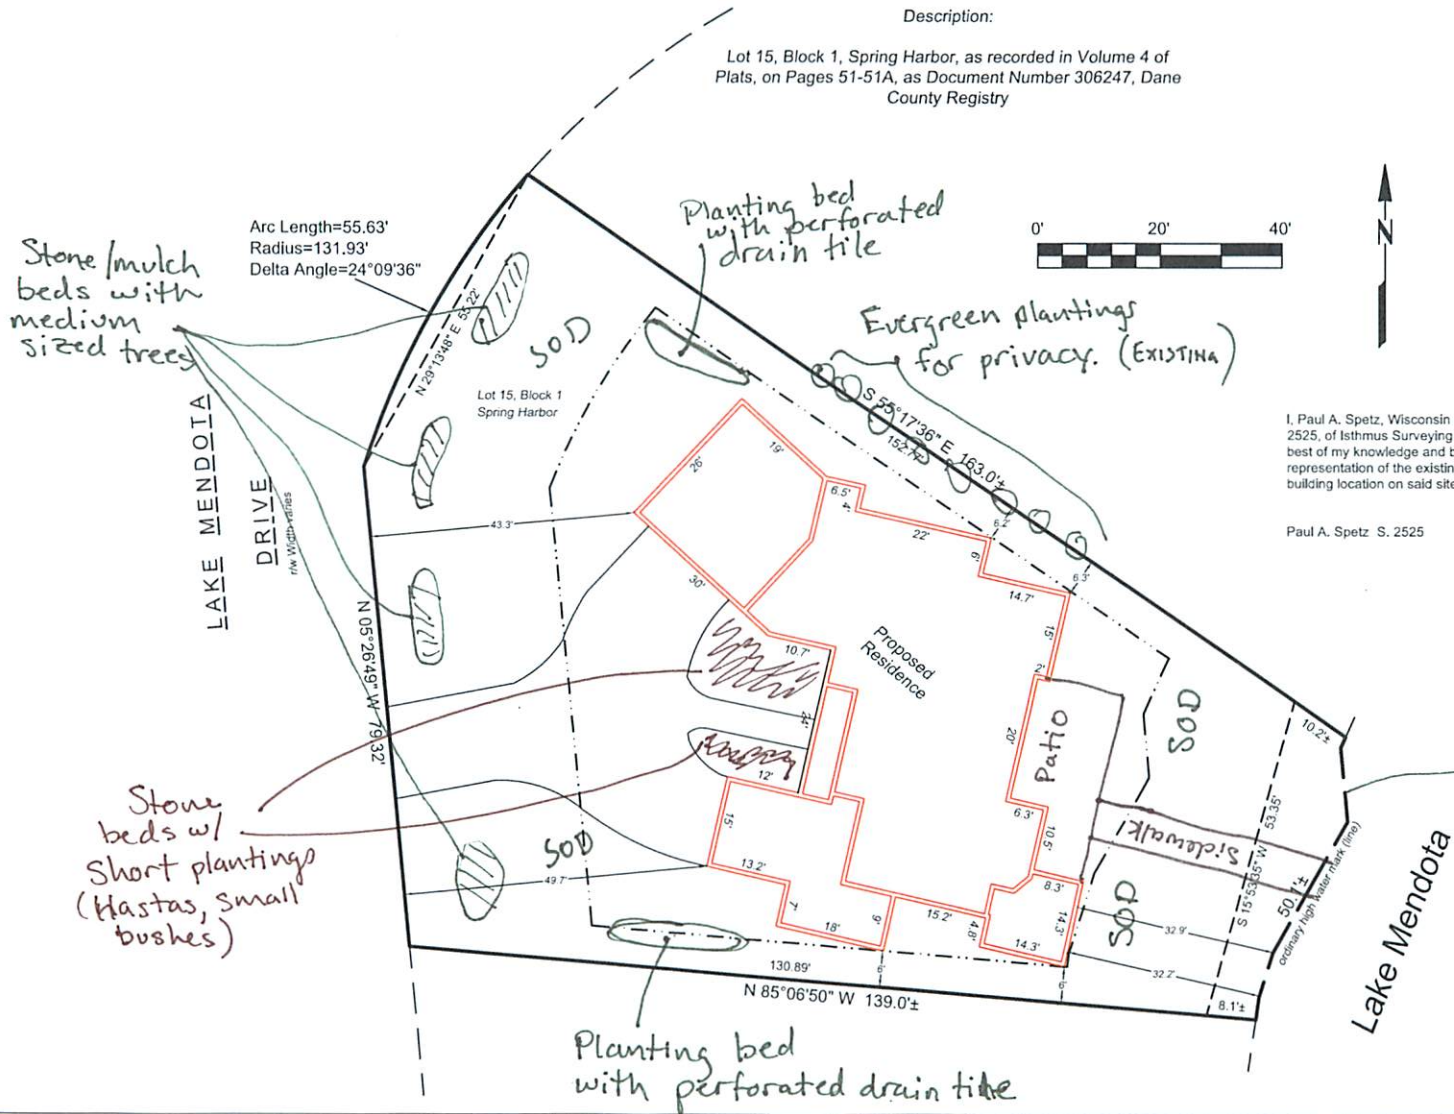 Description:
Lot 15, Block 1, Spring Harbor, as recorded in Volume 4 of
Plats, on Pages 51-51A, as Document Number 306247, Dane
County Registry
Arc Length=55.63'
Radius=131.93'
Delta Angle=24°09'36"
Stone/mulch
beds with
medium
sized trees
Planting bed
with perforated
drain tile
0' 20' 40'
N
Evergreen plantings
for privacy. (EXISTING)
N 29°13'48" E 55.22'
SOD
Lot 15, Block 1
Spring Harbor
S 55°17'36" E 163.0'±
I, Paul A. Spetz, Wisconsin
2525, of Isthmus Surveying
best of my knowledge and b
representation of the existin
building location on said site
Paul A. Spetz S. 2525
LAKE MENDOTA
DRIVE
r/w Width varies
N 05°26'49" W 79.32'
43.3'
26'
19'
6.5'
4'
22'
6.2'
6'
14.7'
6.3'
30'
15'
2'
Proposed
Residence
10.7'
24'
12'
20'
Patio
SOD
10.2'±
6.3'
10.5'
Sidewalk
53.35'
S 15°53'35" W
50.7'±
ordinary high water mark (line)
Lake Mendota
Stone
beds w/
Short plantings
(Hastas, small
bushes)
SOD
15'
13.2'
49.7'
7'
18'
9'
15.2'
4.8'
8.3'
14.3'
14.3'
SOD
32.9'
32.2'
8.1'±
130.89'
6'
6'
N 85°06'50" W 139.0'±
Planting bed
with perforated drain tile